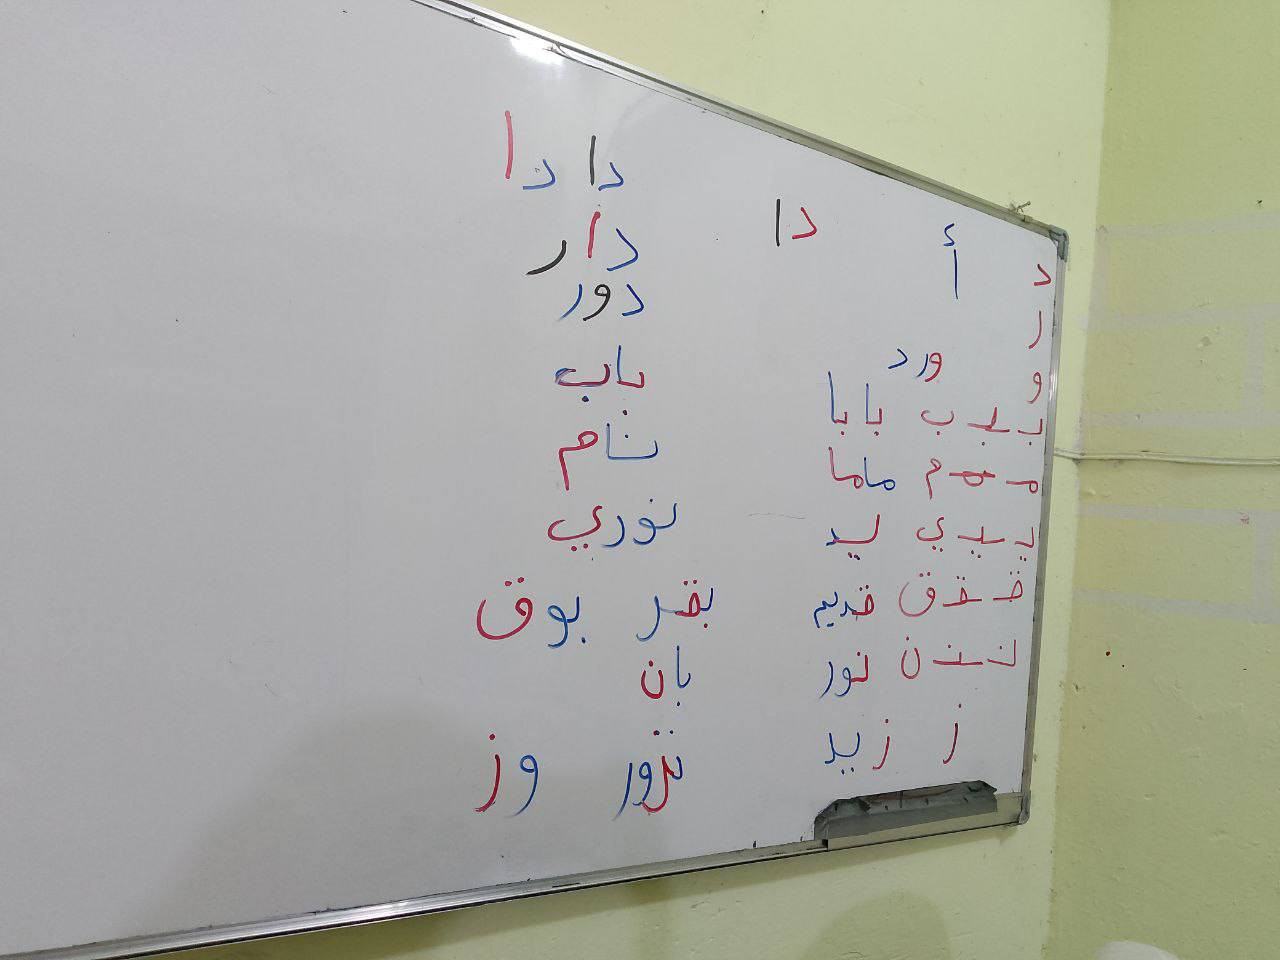 د أ دا دا دا
ر دار
و ورد دور
بـ ـبـ ب بابا باب
مـ ـمـ م ماما نام
يـ ـيـ ي ليد نوري
قـ ـقـ ق قديم بقر بوق
نـ ـنـ ن نور بان
ز زيد نزور وز